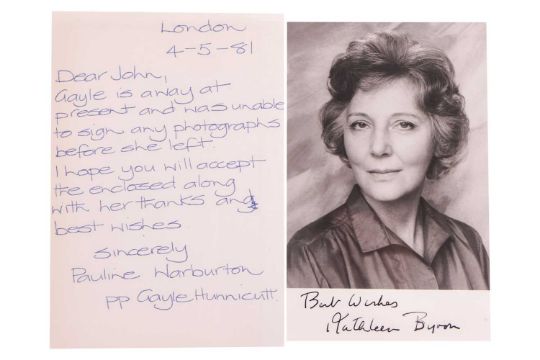 London
4-5-81
Dear John,
Gayle is away at
present and was unable
to sign any photographs
before she left.
I hope you will accept
the enclosed along
with her thanks and
best wishes
Sincerely
Pauline Warburton
pp Gayle Hunnicutt.
Best Wishes
Kathleen Byron